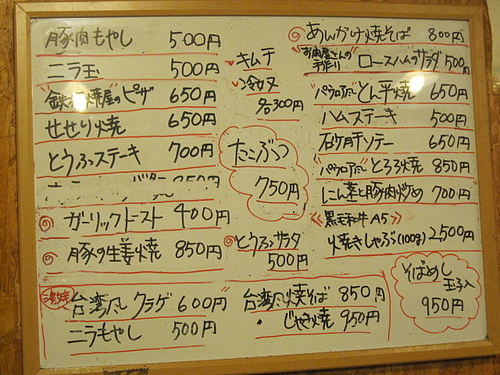 豚肉もやし 500円
ニラ玉 500円
鉄板焼屋のピザ 650円
せせり焼 650円
とうふステーキ 700円
バター 350円
ガーリックトースト 400円
豚の生姜焼 850円
キムチ
冷奴
各300円
たこぶつ
750円
とうふサラダ
500円
あんかけ焼そば 800円
お肉屋さんの
手作り ロースハムのサラダ 500円
とん平焼 650円
ハムステーキ 500円
ソテー 650円
とろろ焼 850円
にん茎と豚肉炒め 700円
黒毛和牛A5
焼きしゃぶ(100g) 2,500円
そばめし
玉子入
950円
台湾風クラゲ 600円
ニラもやし 500円
台湾風焼そば 850円
じゃき焼 950円